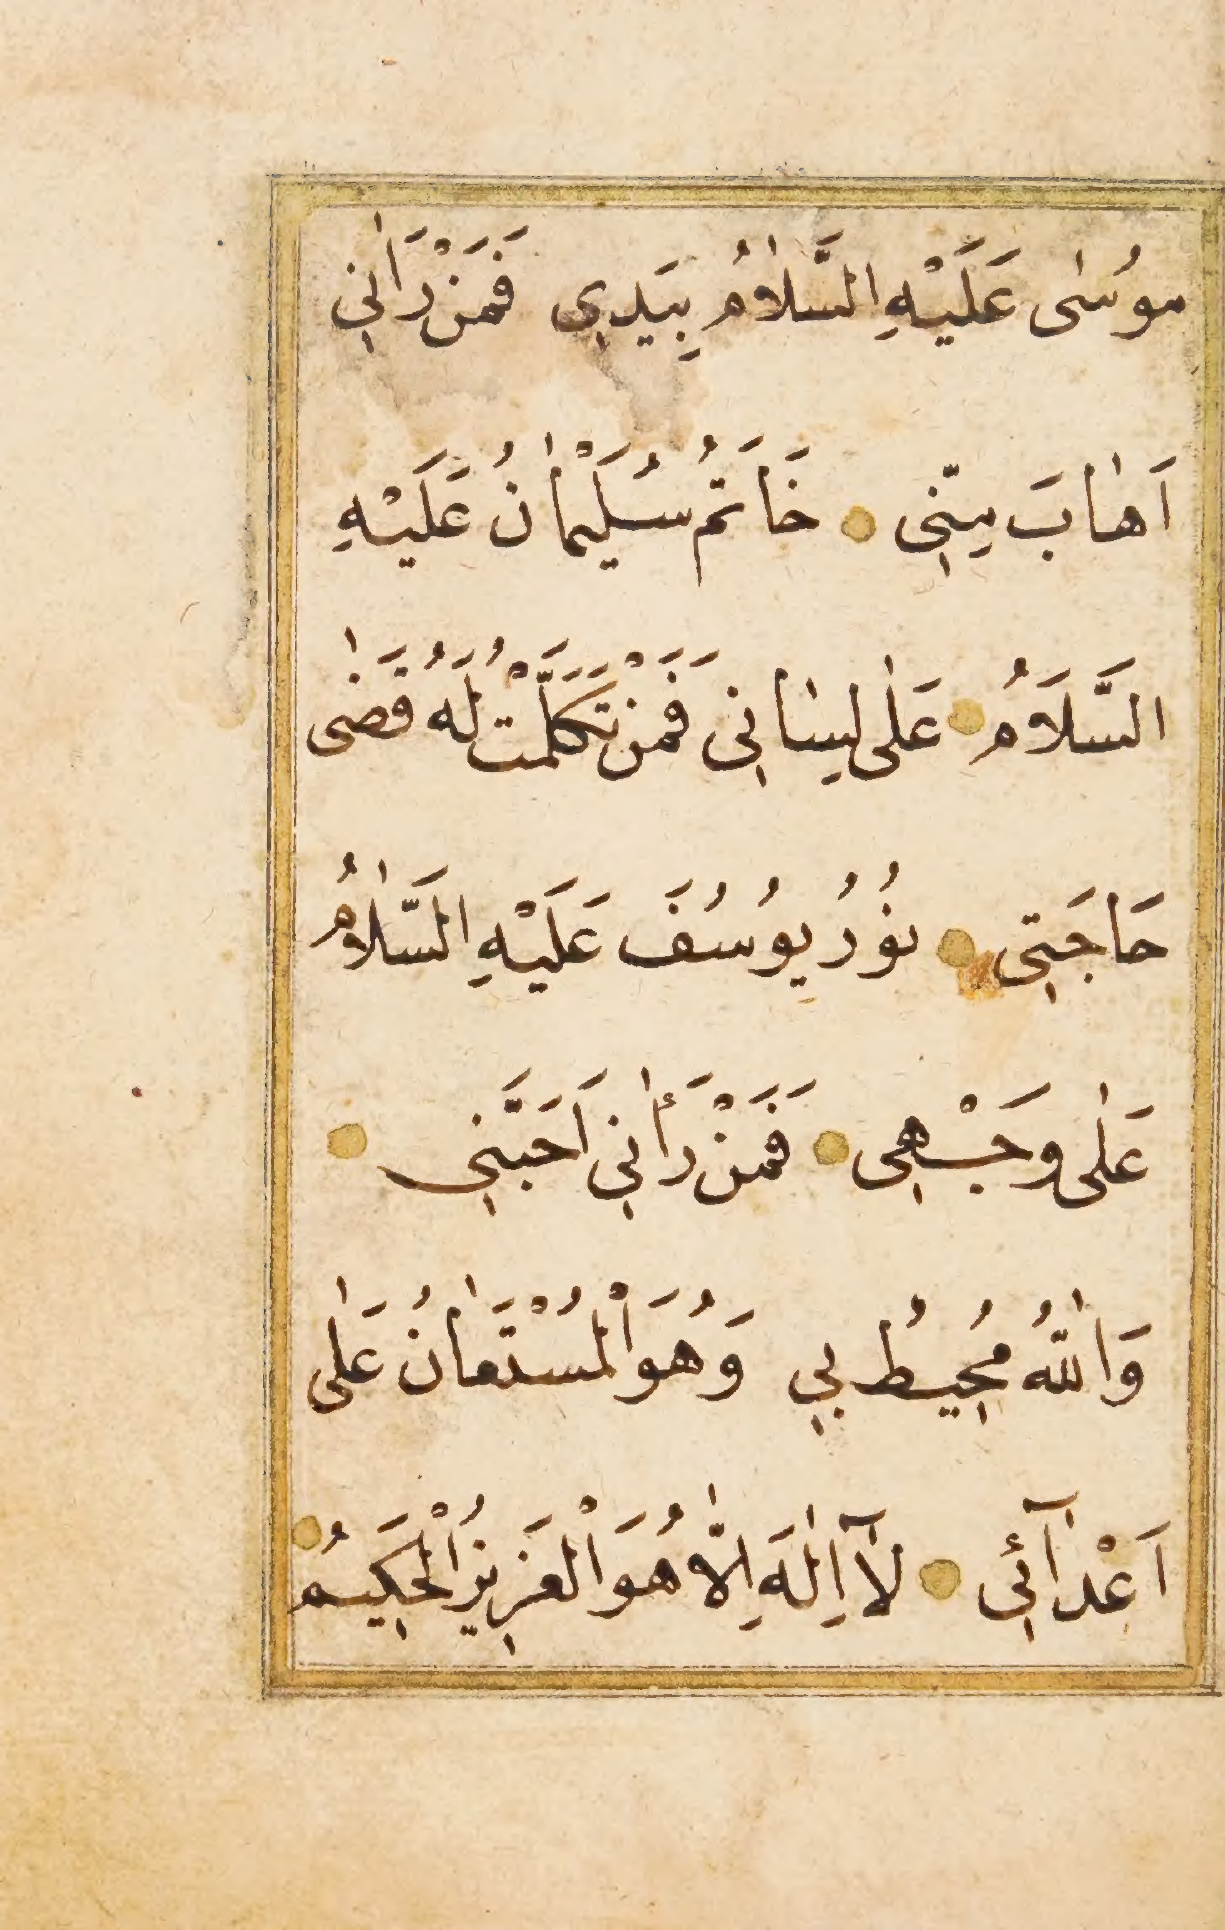 مُوسٰى عَلَيْهِ السَّلَامُ بِيَدِي فَمَنْ رَاٰنِي
اَهَابَ مِنّٖي خَاتَمُ سُلَيْمَانُ عَلَيْهِ
السَّلَامُ عَلٰى لِسَانِي فَمَنْ تَكَلَّمْتُ لَهُ قَضٰى
حَاجَتِي نُورُ يُوسُفَ عَلَيْهِ السَّلَامُ
عَلٰى وَجْهِي فَمَنْ رَأٰنِي اَحَبَّنِي
وَاللّٰهُ مُحِيطُ بِي وَهُوَ الْمُسْتَعَانُ عَلٰى
اَعْدَآئِي لَآ اِلٰهَ اِلَّا هُوَ الْعَزِيزُ الْحَكِيمُ